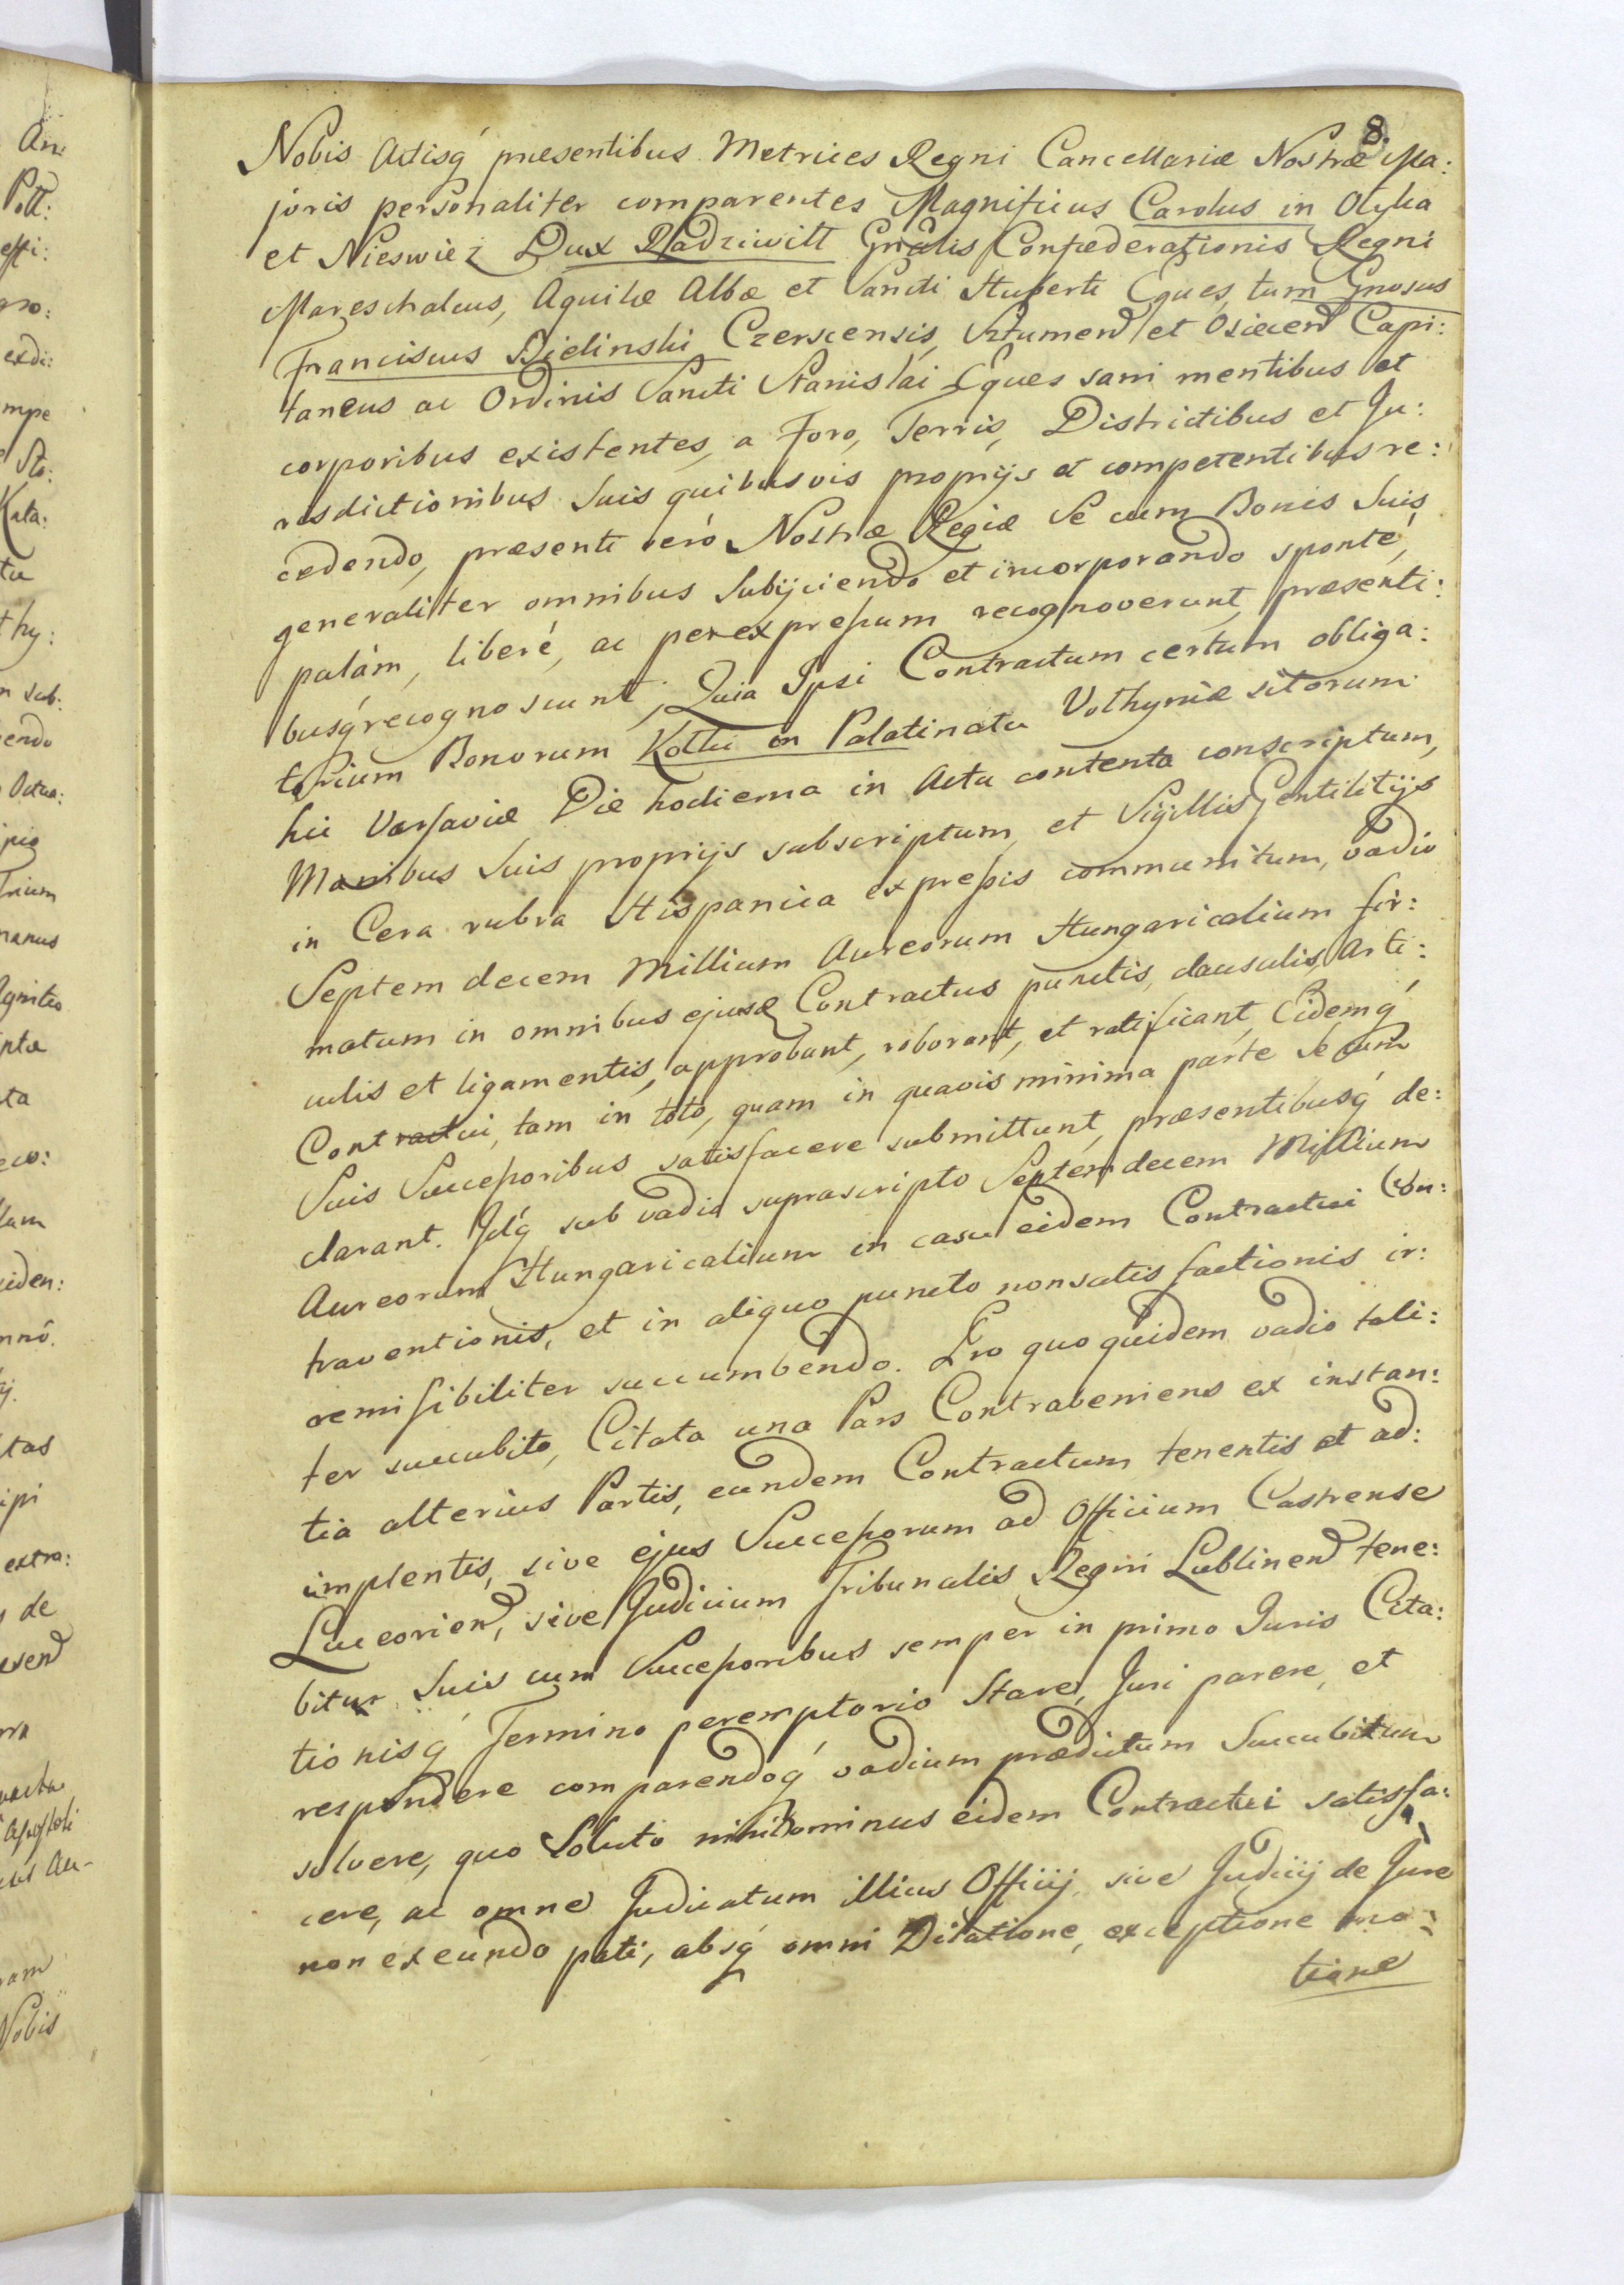 8.
Nobis Actisq́ praesentibus Metrices Regni Cancellariæ Nostræ Ma:
joris personaliter comparentes Magnificus Carolus in Olyka
et Nieswiez Dux Radziwiłł Gnalis Confæderationis Regni
Mareschalcus, Aquilæ Albæ et Sancti Huberti Eques, tum Gnosus
Franciscus Bielinski Czerscensis, Sztumen et Osiecen Capi:
taneus ac Ordinis Sancti Stanislai Eques sani mentibus et
corporibus existentes, a Foro, Terris, Districtibus et Ju:
risdictionibus Suis quibusvis proprijs et competentibus re:
cedendo, præsenti veró Nostræ Regiæ Se cum Bonis Suis
generaliter omnibus Subijciendo et incorporando sponté,
palám, liberé, ac per expreßum recognoverunt, præsenti:
busq́ recognoscunt, Quia Ipsi Contractum certum obliga:
torium Bonorum Kołki in Palatinatu Volhyniæ sitorum
hic Varsaviæ Die hodierna in Actu contenta conscriptum,
Manibus Suis proprijs subscriptum, et Sigillis Gentilitijs
in Cera rubra Hispanica expreßis communitum, vadio
Septem decem Millium Aureorum Hungaricalium fir:
matum in omnibus ejusd Contractus punctis, clausulis, Arti:
culis et ligamentis, approbant, roborant, et ratificant, Eidemq́
Contractui, tam in toto, quam in quavis minima parte se cum
Suis Succeßoribus satisfacere submittunt, præsentibusq́ de:
clarant. Idq́ sub vadio suprascripto Septem decem Millium
Aureorum Hungaricalium in casu eidem Contractui Con:
traventionis, et in aliquo puncto nonsatisfactionis ir:
remisibiliter succumbendo. Pro quo quidem vadio tali:
ter succubito, Citata una Pars Contraveniens ex instan:
tia alterius Partis, eundem Contractum tenentis et ad:
implentis, sive ejus Succeßorum ad Officium Castrense
Luceorien, sive Judicium Tribunalis Regni Lublinen tene:
bitur Suis cum Succeßoribus semper in primo Juris Cita:
tionisq́ Termino peremptorio Stare, Juri parere, et
respondere comparendoq́ vadium prædictum Succubitum
solvere, quo Soluto nihilominus eidem Contractui satisfa:
cere, ac omne Judicatum illius Officij, sive Judicij de Jure
non exeundo pati, absq́ omni Dilatione, exceptione mo:
tione